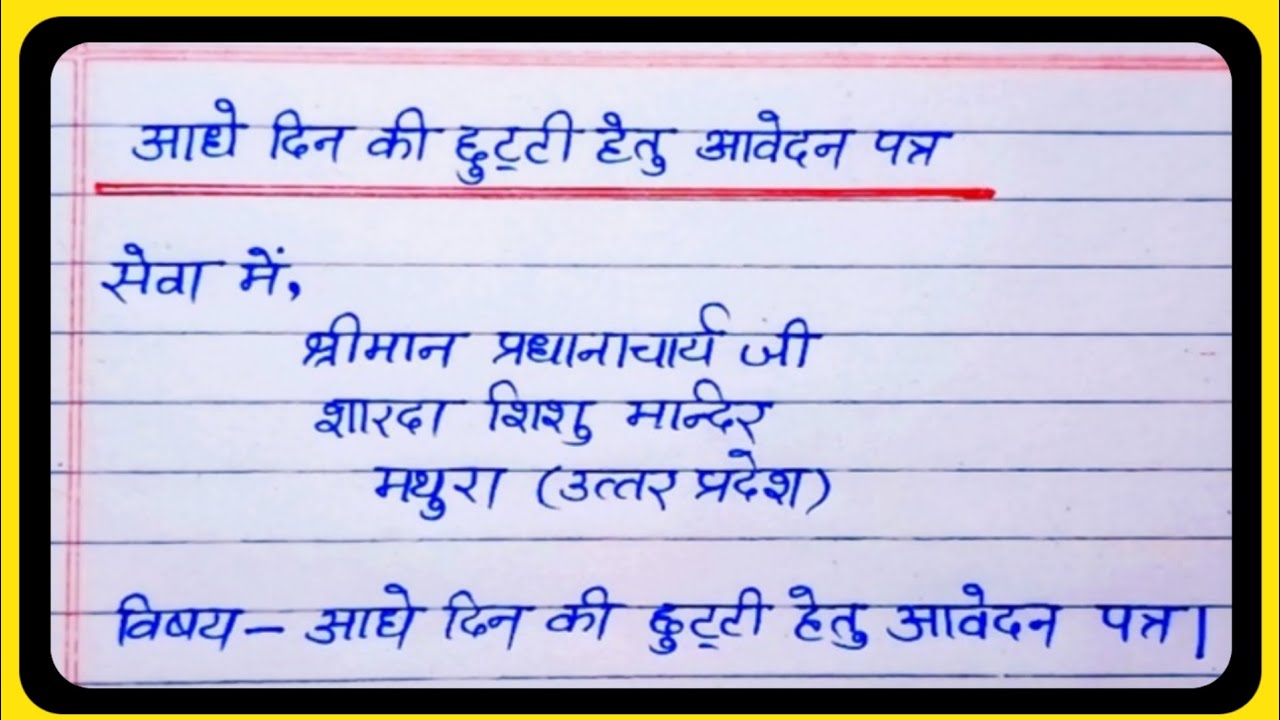 आधे दिन की छुट्टी हेतु आवेदन पत्र
सेवा में,
श्रीमान प्रधानाचार्य जी
शारदा शिशु मन्दिर
मथुरा (उत्तर प्रदेश)
विषय - आधे दिन की छुट्टी हेतु आवेदन पत्र।